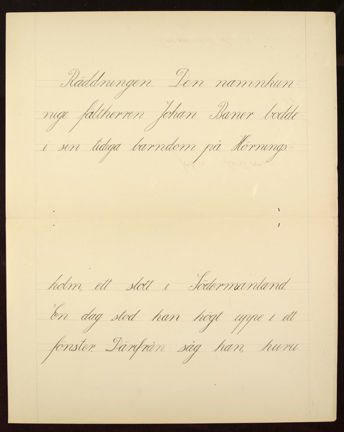 Räddningen. Den namnkun-
nige fältherren Johan Baner bodde
i sin tidiga barndom på Hörnings-
holm, ett slott i Södermanland.
En dag stod han högt uppe i ett
fönster. Därifrån såg han, huru